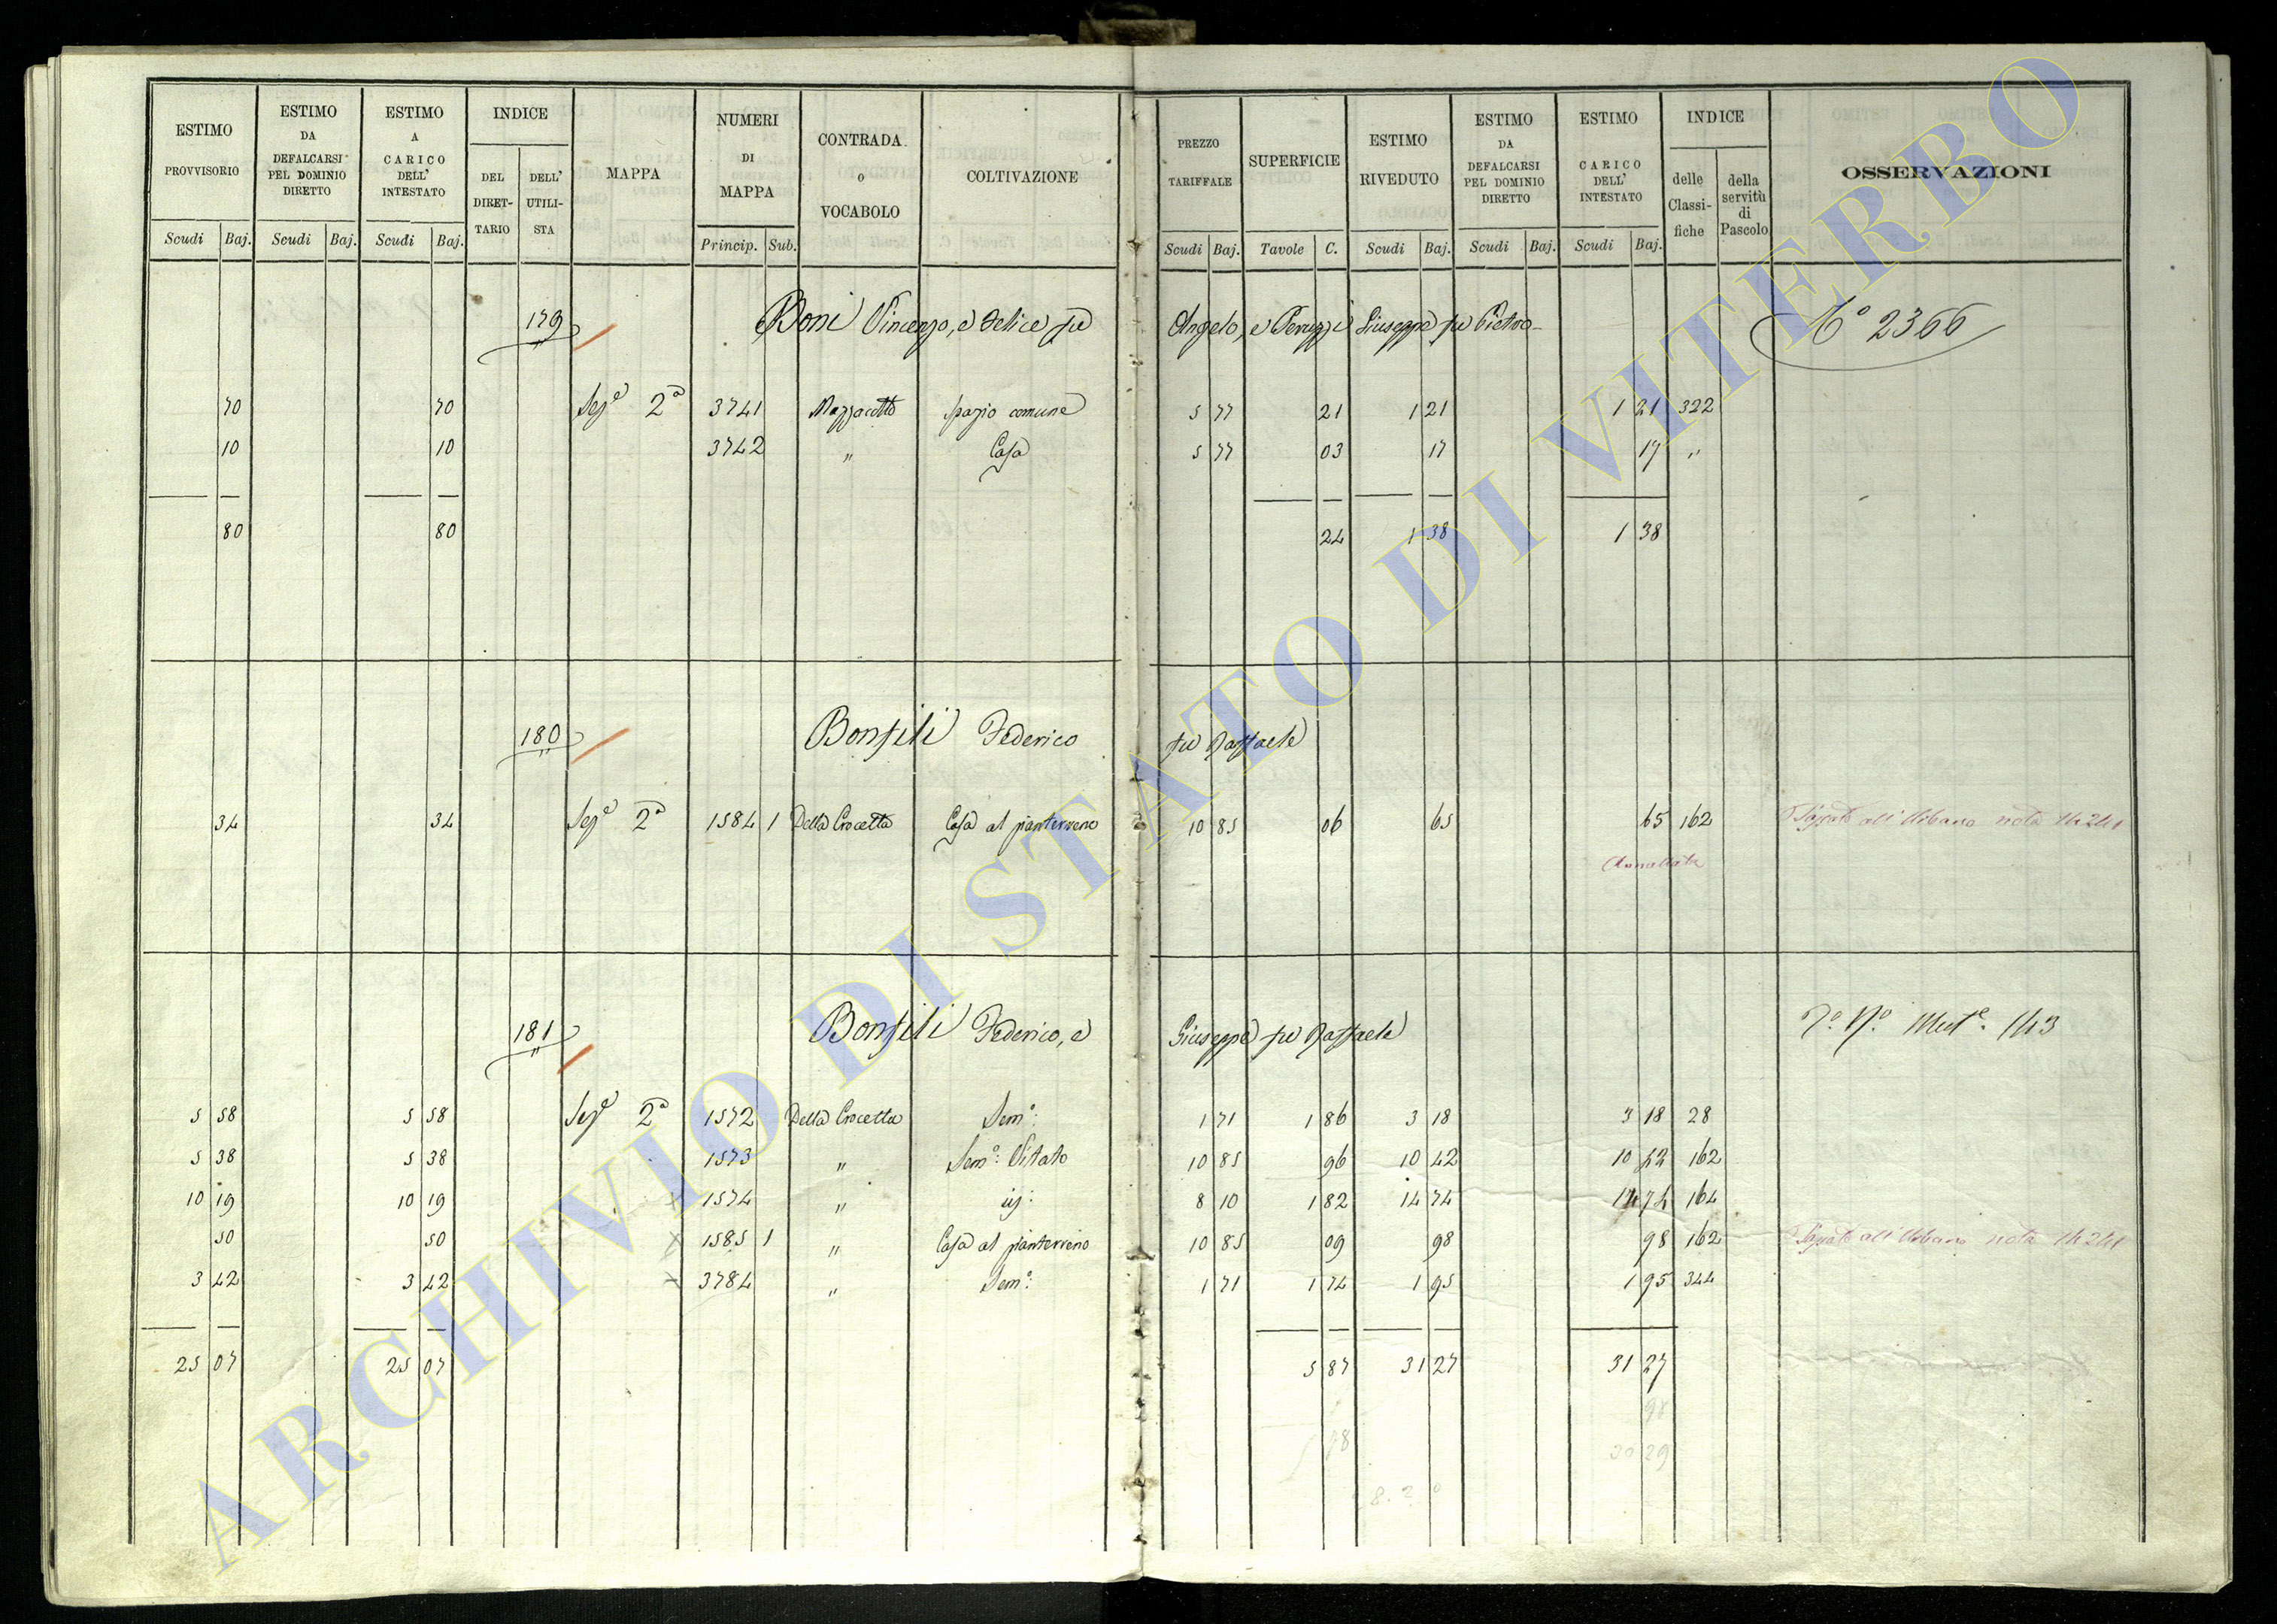 ESTIMO PROVVISORIO
ESTIMO DA DEFALCARSI PEL DOMINIO DIRETTO
ESTIMO A CARICO DELL' INTESTATO
INDICE
DEL DIRET- TARIO
DELL' UTILI- STA
MAPPA
NUMERI DI MAPPA
CONTRADA O VOCABOLO
COLTIVAZIONE
PREZZO TARIFFALE
SUPERFICIE
ESTIMO RIVEDUTO
ESTIMO DA DEFALCARSI PEL DOMINIO DIRETTO
ESTIMO CARICO DELL' INTESTATO
INDICE
delle Classi- fiche
della servitù di Pascolo
OSSERVAZIONI
Scudi Baj. Scudi Baj. Scudi Baj. Princip. Sub. Scudi Baj. Tavole C. Scudi Baj. Scudi Baj. Scudi Baj.
179 Boni Vincenzo, e Felice fu Angelo, e Peruzzi Giuseppe fu Pietro N° 2366
70 70 Sezᵉ 2ᵃ 3741 Mazzacotto spazio comune 5 77 21 1 21 1 21 322
10 10 3742 " Casa 5 77 03 17 17 "
80 80 24 1 38 1 38
180 Bonfili Federico fu Raffaele
34 34 Sezᵉ 2ᵃ 1584 1 Della Crocetta Casa al pianterreno 10 85 06 65 65 162 Passato all'Urbano nota 14241
Annullata
181 Bonfili Federico, e Giuseppe fu Raffaele Mutᵉ. 143
5 58 5 58 Sezᵉ 2ᵃ 1572 Della Crocetta Semᵒ: 1 71 1 86 3 18 3 18 28
5 38 5 38 1573 " Semᵒ: Vitato 10 85 96 10 42 10 42 162
10 19 10 19 1574 " 8 10 1 82 14 74 14 74 164
50 50 1585 1 " Casa al pianterreno 10 85 09 98 98 162 Passato all'Urbano nota 14241
3 42 3 42 3784 " Semᵒ: 1 71 1 14 1 95 1 95 344
25 07 25 07 5 87 31 27 31 27
98
30 29
ARCHIVIO DI STATO DI VITERBO